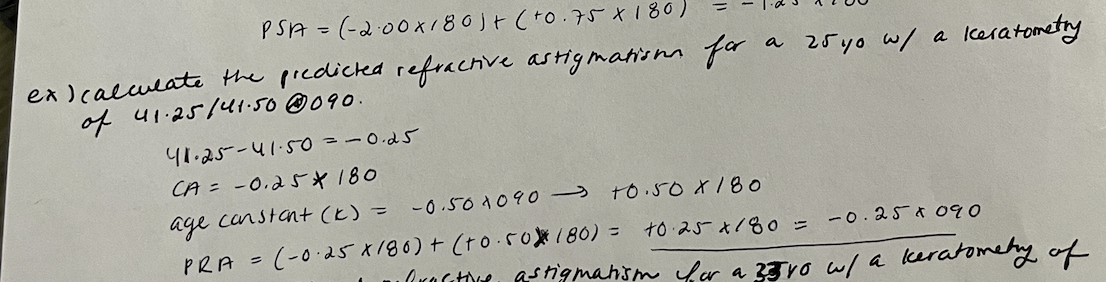 PSA = (-2.00 x 180) + (+0.75 x 180) =
ex) calculate the predicted refractive astigmatism for a 25 yo w/ a keratometry
of 41.25/41.50 @ 090.
41.25 - 41.50 = -0.25
CA = -0.25 x 180
age constant (k) = -0.50 x 090 → +0.50 x 180
PRA = (-0.25 x 180) + (+0.50 x 180) = +0.25 x 180 = -0.25 x 090
astigmatism for a yo w/ a keratometry of